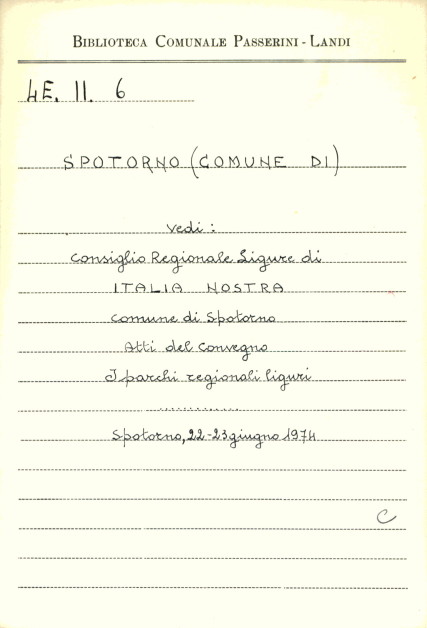 BIBLIOTECA COMUNALE PASSERINI - LANDI
4E. II. 6
SPOTORNO (COMUNE DI)
vedi :
Consiglio Regionale Ligure di
ITALIA NOSTRA
Comune di Spotorno
Atti del Convegno
I parchi regionali liguri
............
Spotorno, 22-23 giugno 1974
C